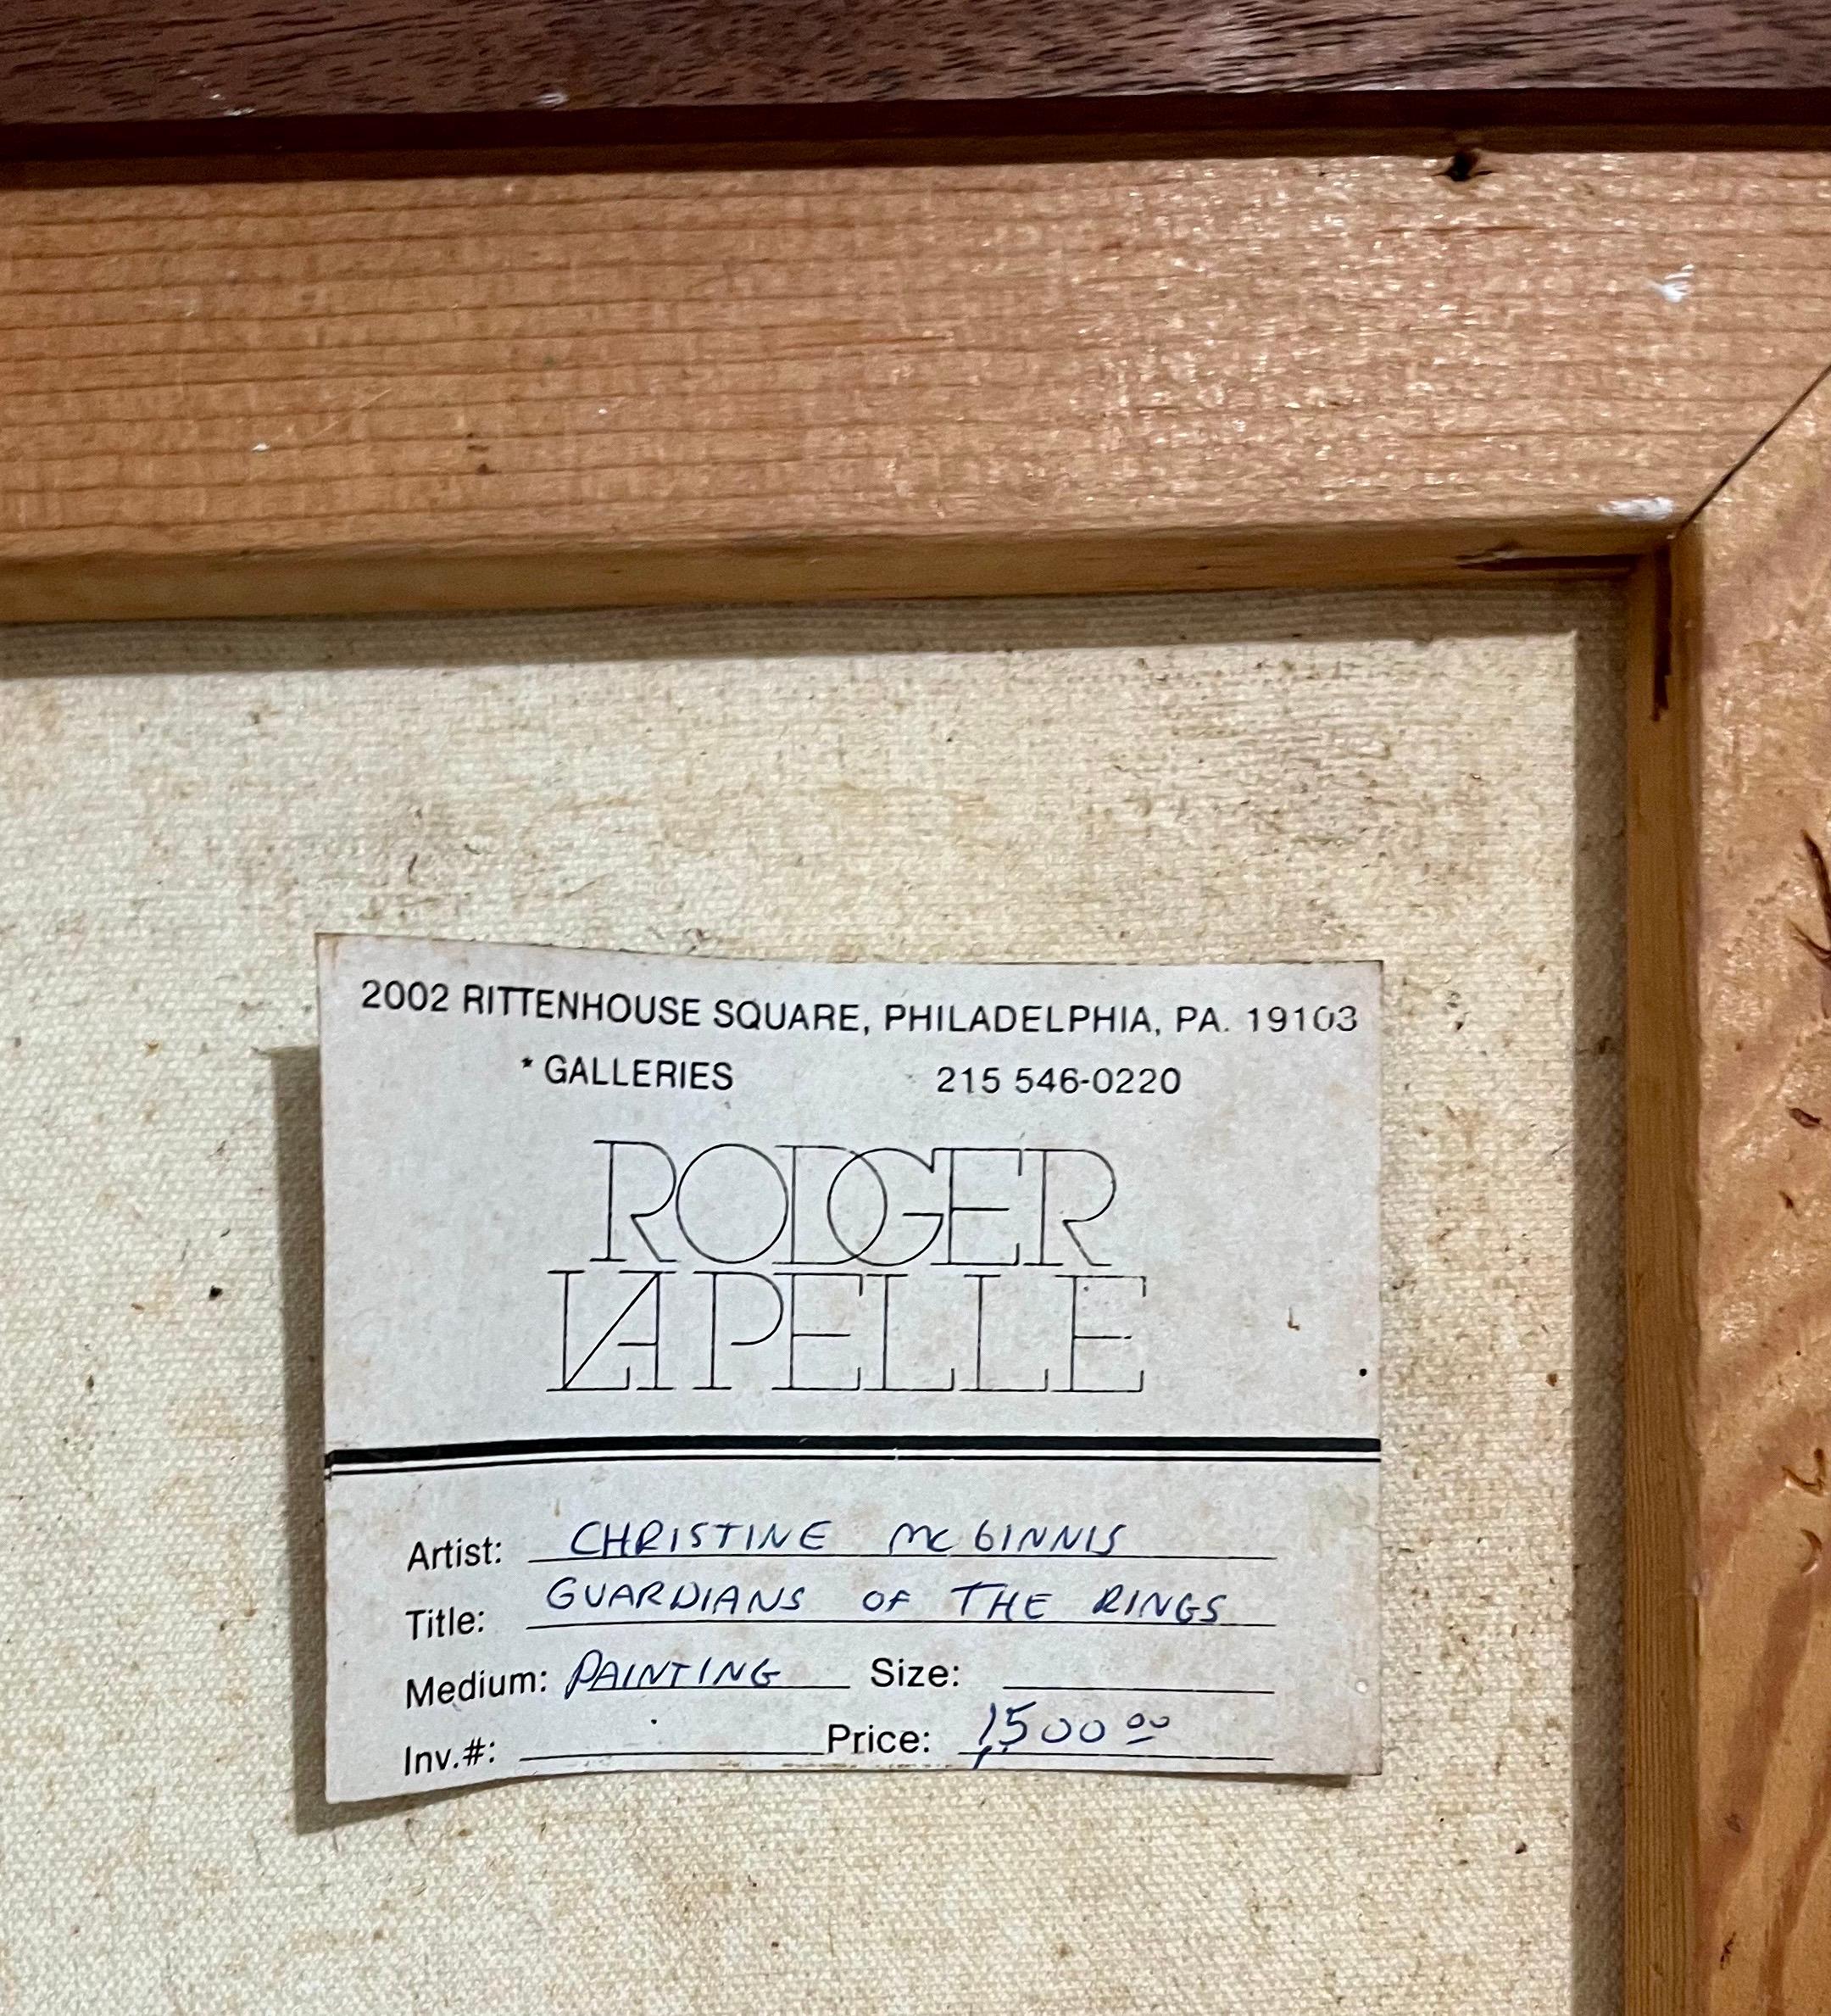 2002 RITTENHOUSE SQUARE, PHILADELPHIA, PA. 19103
* GALLERIES 215 546-0220
RODGER
LAPELLE
Artist: CHRISTINE MCGINNIS
Title: GUARDIANS OF THE RINGS
Medium: PAINTING Size:
Inv.#: Price: 1,500 00